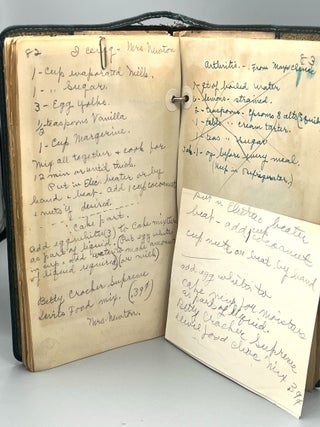 82
Iceing - Mrs Newton
1 - Cup evaporated Milk.
1 - " Sugar.
3 - Egg Yolks.
1/2 teaspoons Vanilla
1 - Cup Margerine.
Mix all together & cook for
12 min or until thick.
Put in Elec. beater or by
hand - beat - add 1 cup cocoanut
& nuts if desired
" Cake part.
add egg whites (3) to Cake mixture
as part of liquid. (Put egg whites
in cup - add water to make amount
of liquid required (or milk)
Betty Crocker Supreme
Devils Food mix. (.39¢)
Mrs. Newton.
83
Arthritis - From Mayo Clinic
1 - qt of boiled water
lemons - strained.
2 - teaspoons - Epsom Salts
1 - table - cream tarter.
1 - teas - Sugar
before every meal,
(keep in refrigerator)
Put in Electric beater
beat - add 1 cup cocoanut
cup nuts or beat by hand
add egg whites to
cake mix for moisture
as part of liquid.
Betty Crocker Supreme
Devil food cake mix 39¢